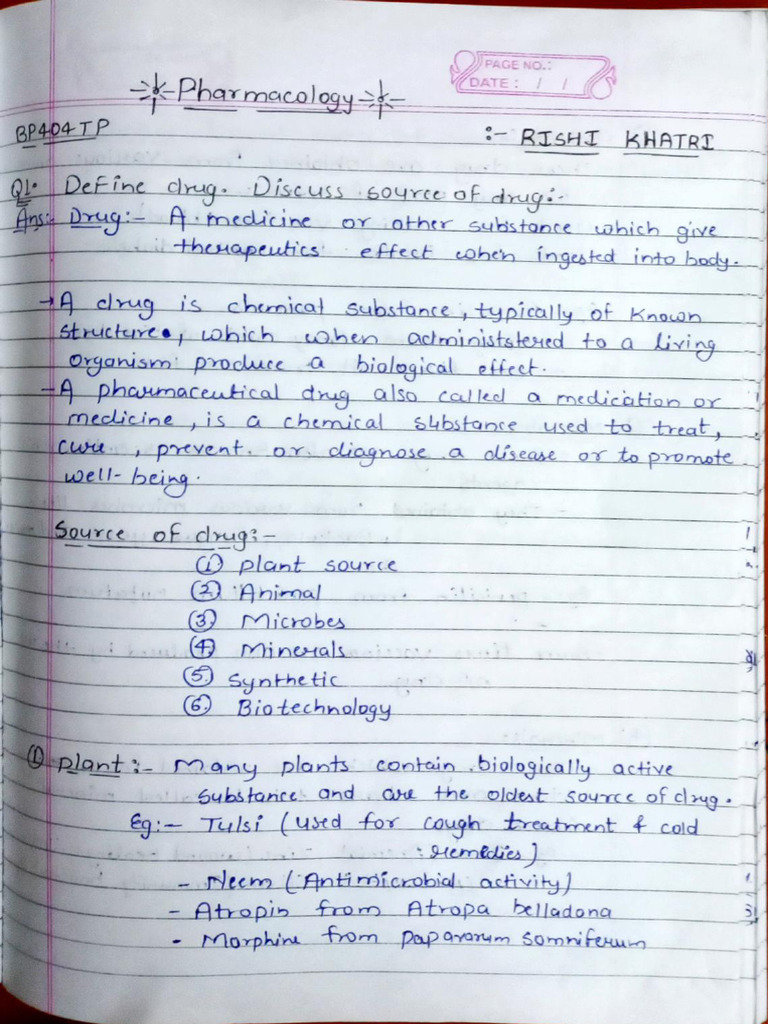 PAGE NO.:
DATE : / /
Pharmacology
BP404TP :- RISHI KHATRI
Q1. Define drug. Discuss source of drug:-
Ans:- Drug:- A medicine or other substance which give
therapeutics effect when ingested into body.
→ A drug is chemical substance, typically of known
structure, which when administstered to a living
organism produce a biological effect.
- A pharmaceutical drug also called a medication or
medicine, is a chemical substance used to treat,
cure, prevent or diagnose a disease or to promote
well-being.
Source of drug:-
① plant source
② Animal
③ Microbes
④ Minerals
⑤ Synthetic
⑥ Biotechnology
① plant:- Many plants contain biologically active
substance and are the oldest source of drug.
Eg:- Tulsi (used for cough treatment & cold
remedies)
- Neem (Antimicrobial activity)
- Atropin from Atropa belladona
- Morphine from somniferum